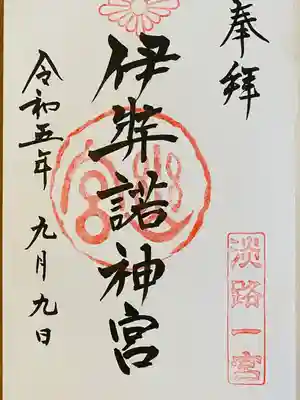 奉拝
淡路一宮
伊弉諾神宮
令和五年 九月九日